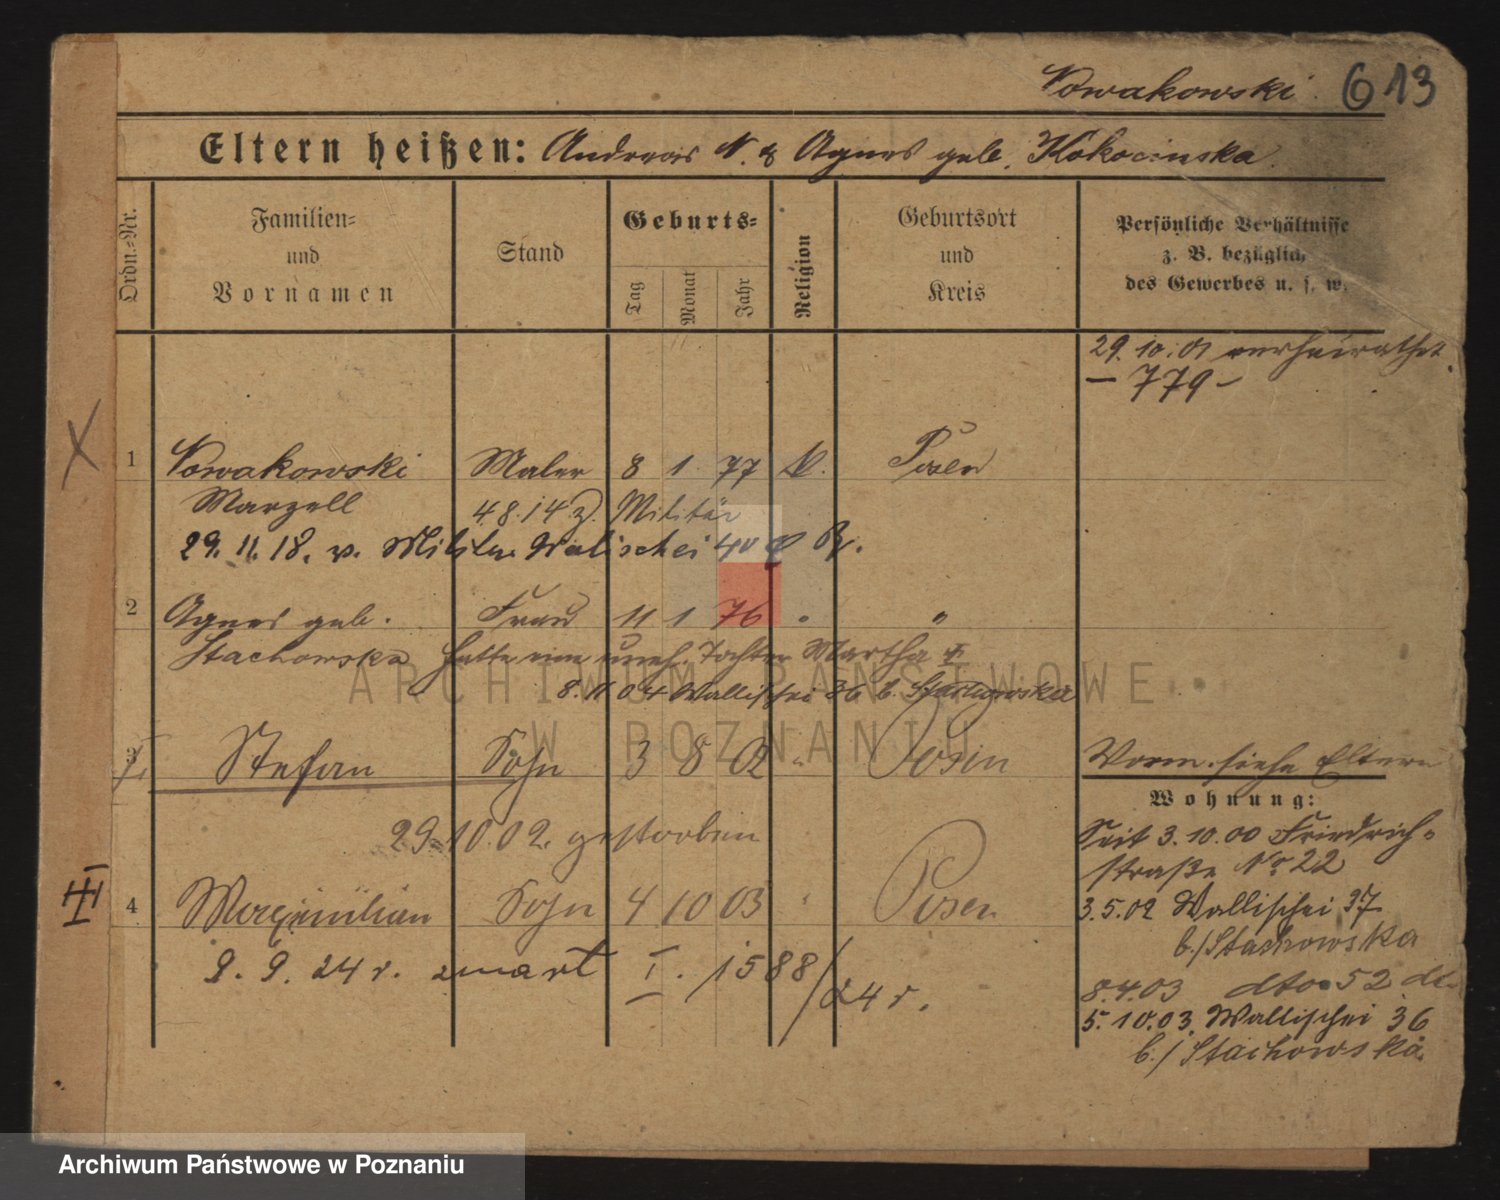 Nowakowski. 613
Eltern heißen: Andreas N. & Agnes geb. Kokocinska.
Ordn.-Nr.
Familien-
und
Vornamen
Stand
Geburts-
Tag
Monat
Jahr
Religion
Geburtsort
und
Kreis
Persönliche Verhältnisse
z. B. bezüglich
des Gewerbes u. s. w.
29.10.01 verheirathet
– 779 –
1 Nowakowski Maler 8 1 77 Posen
Marzell 4.8.14 z. Militär
29.11.18. v. Militär Wallischei 40
2 Agnes geb. Frau 11 1 76 " "
Stachowska hatte eine uneh. Tochter Martha
8.11.04 Wallischei 36 b. Stachowska
3 Stefan Sohn 3 8 02 " Posen
29.10.02. gestorben
4 Maximilian Sohn 4 10 03 " Posen
9.9.24 r. zmarł I. 1588/24 r.
III
X
Vorm. siehe Eltern
Wohnung:
Seit 3.10.00 Friedrich-
straße Nr 22
3.5.02 Wallischei 37
b./Stachowska
8.4.03 dto 52 dto
5.10.03. Wallischei 36
b./Stachowska.
ARCHIWUM PAŃSTWOWE
W POZNANIU
Archiwum Państwowe w Poznaniu